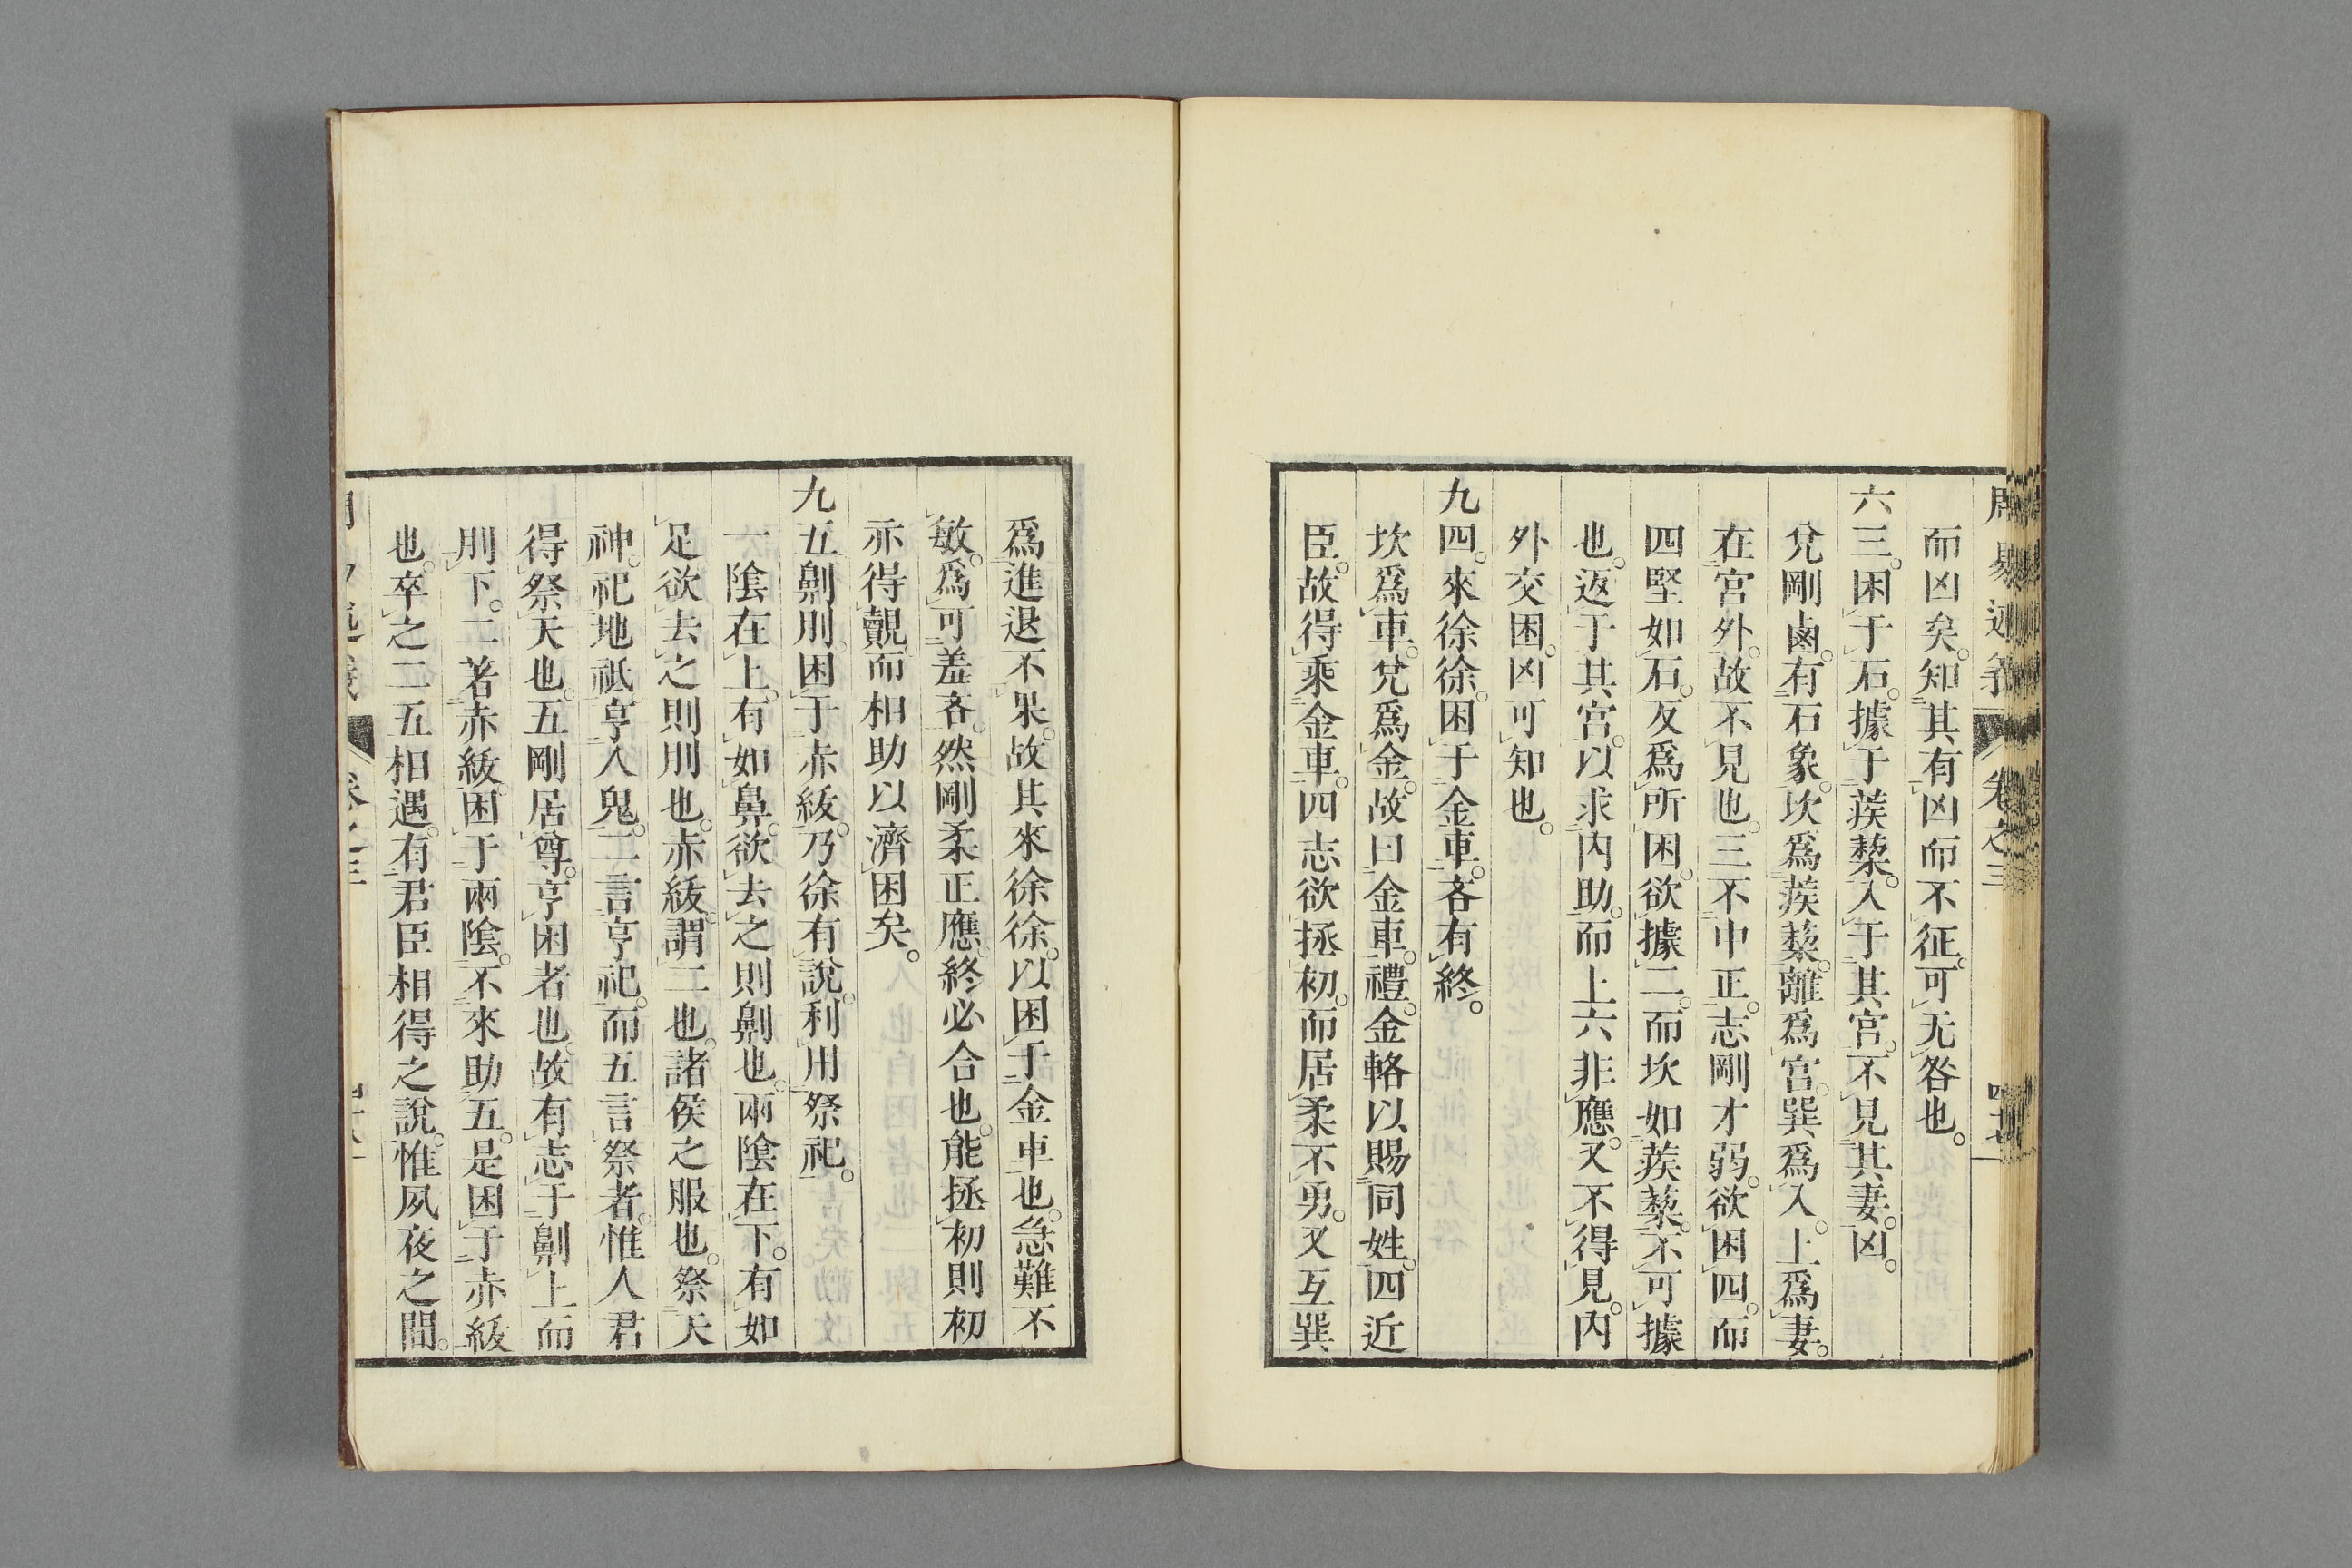 周易述義 卷之三 四十七
而凶矣。知其有凶而不征。可无咎也。
六三。困于石。據于蒺蔾。入于其宮。不見其妻。凶。
兌剛鹵。有石象。坎爲蒺蔾。離爲宮。巽爲入。上爲妻。
在宮外。故不見也。三不中正。志剛才弱。欲困四。而
四堅如石。反爲所困。欲據二。而坎如蒺蔾。不可據
也。返于其宮。以求內助。而上六非應。又不得見。內
外交困。凶可知也。
九四。來徐徐。困于金車。吝有終。
坎爲車。兌爲金。故曰金車。禮。金輅以賜同姓。四近
臣。故得乘金車。四志欲拯初。而居柔不勇。又互巽
爲進退不果。故其來徐徐。以困于金車也。急難不
敏。爲可羞吝。然剛柔正應。終必合也。能拯初則初
亦得觀。而相助以濟困矣。
九五劓刖。困于赤紱。乃徐有說。利用祭祀。
一陰在上。有如鼻。欲去之則劓也。兩陰在下。有如
足欲去之則刖也。赤紱。謂二也。諸侯之服也。祭天
神。祀地祇。亨人鬼。二言亨祀。而五言祭者。惟人君
得祭天也。五剛居尊。亨困者也。故有志于劓上而
刖下。二著赤紱。困于兩陰。不來助五。是困于赤紱
也。卒之二五相遇。有君臣相得之說。惟夙夜之間。